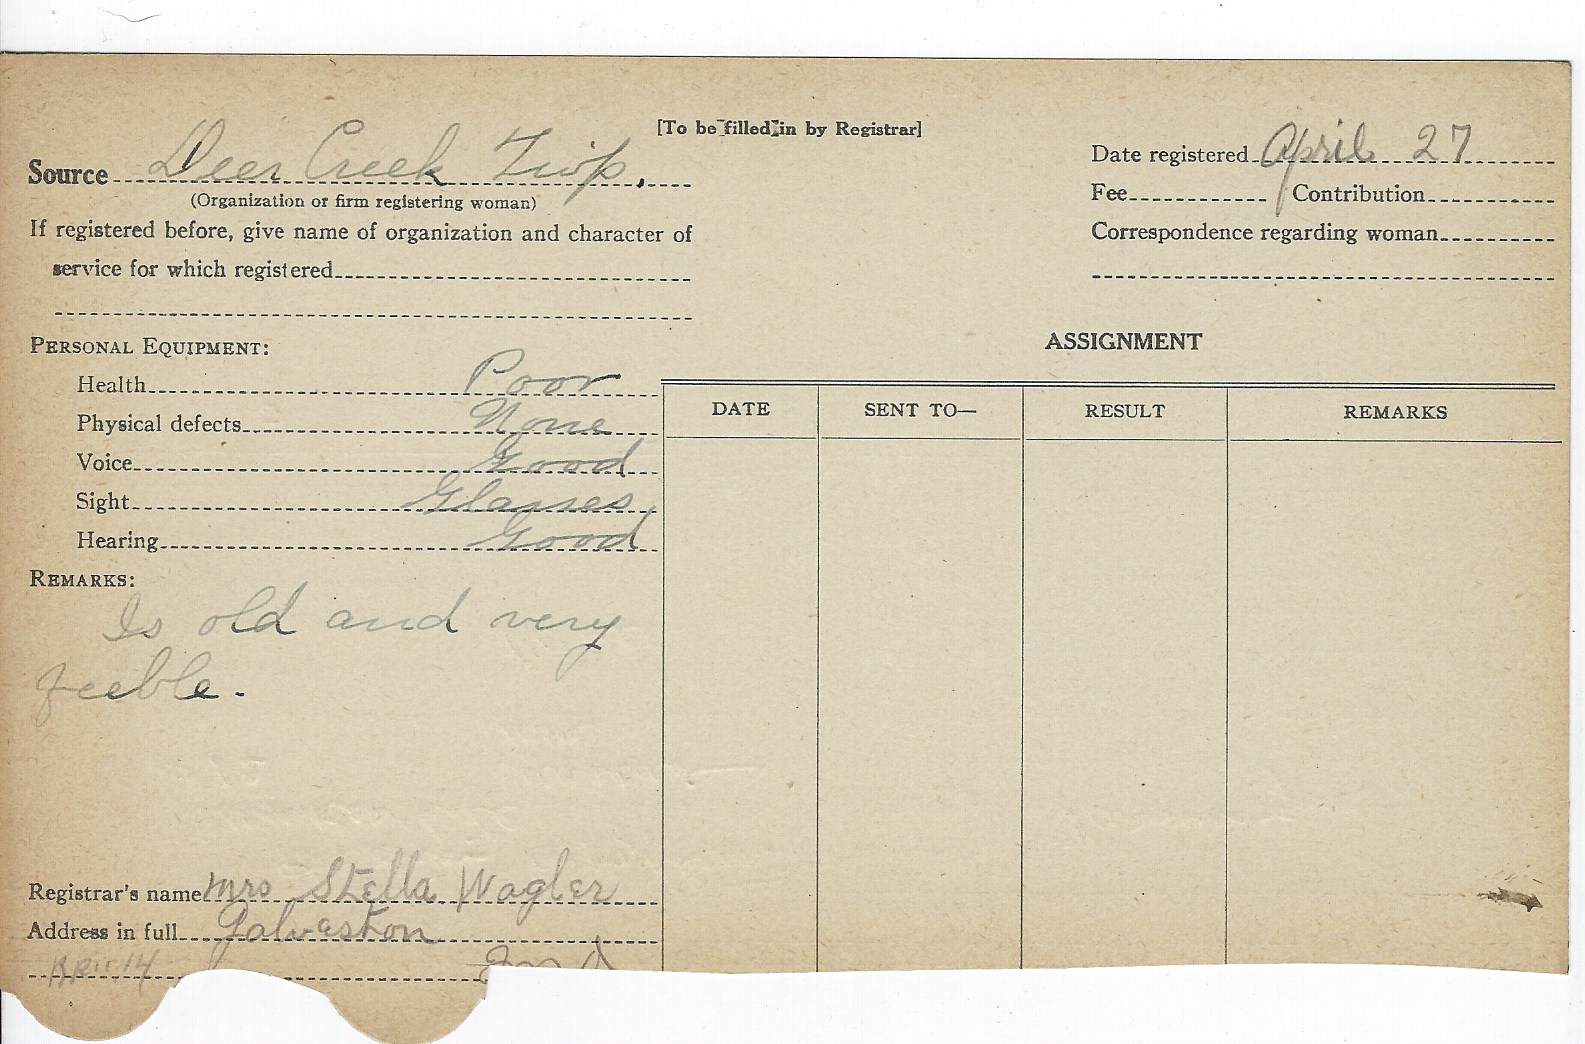 [To be filled in by Registrar]
Source Deer Creek Twp.
(Organization or firm registering woman)
If registered before, give name of organization and character of
service for which registered
Date registered April 27
Fee Contribution
Correspondence regarding woman
PERSONAL EQUIPMENT:
Health Poor
Physical defects None
Voice Good
Sight Glasses
Hearing Good
REMARKS:
Is old and very
feeble.
ASSIGNMENT
DATE SENT TO— RESULT REMARKS
Registrar's name Mrs Stella Wagler
Address in full Galveston
14